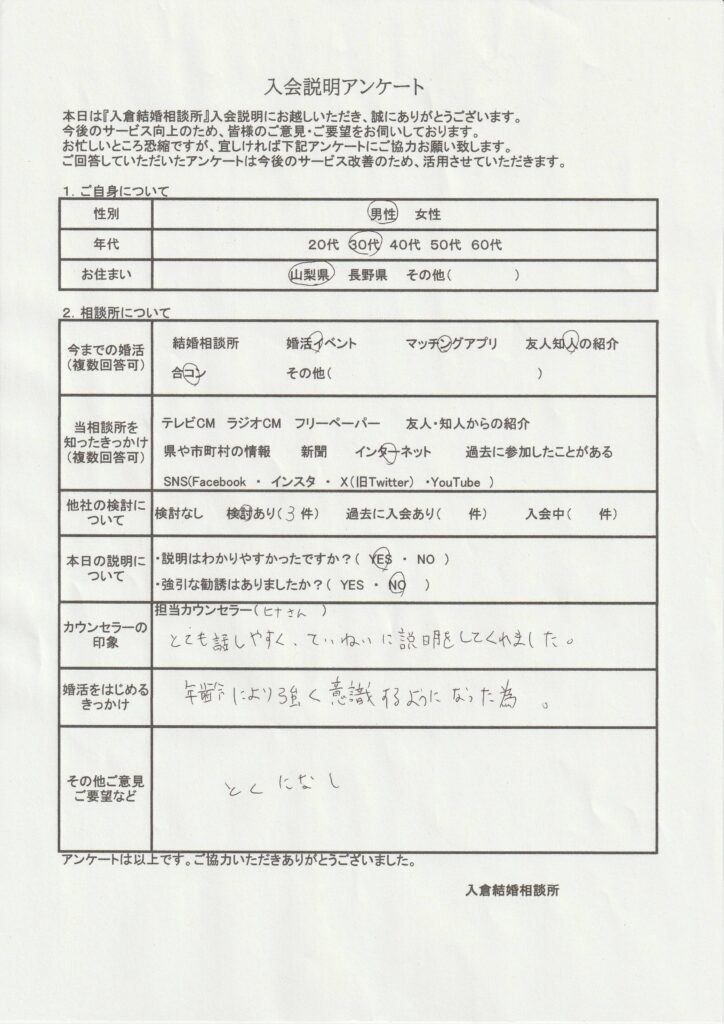 入会説明アンケート
本日は『入倉結婚相談所』入会説明にお越しいただき、誠にありがとうございます。
今後のサービス向上のため、皆様のご意見・ご要望をお伺いしております。
お忙しいところ恐縮ですが、宜しければ下記アンケートにご協力お願い致します。
ご回答していただいたアンケートは今後のサービス改善のため、活用させていただきます。
1. ご自身について
性別 男性 女性
年代 20代 30代 40代 50代 60代
お住まい 山梨県 長野県 その他( )
2. 相談所について
今までの婚活
(複数回答可)
結婚相談所 婚活イベント マッチングアプリ 友人知人の紹介
合コン その他( )
当相談所を
知ったきっかけ
(複数回答可)
テレビCM ラジオCM フリーペーパー 友人・知人からの紹介
県や市町村の情報 新聞 インターネット 過去に参加したことがある
SNS(Facebook ・ インスタ ・ X(旧Twitter) ・YouTube )
他社の検討に
ついて
検討なし 検討あり(3件) 過去に入会あり( 件) 入会中( 件)
本日の説明に
ついて
・説明はわかりやすかったですか?( YES ・ NO )
・強引な勧誘はありましたか?( YES ・ NO )
カウンセラーの
印象
担当カウンセラー(ヒナさん )
とても話しやすく、ていねいに説明をしてくれました。
婚活をはじめる
きっかけ
年齢により強く意識するようになった為。
その他ご意見
ご要望など
とくになし
アンケートは以上です。ご協力いただきありがとうございました。
入倉結婚相談所